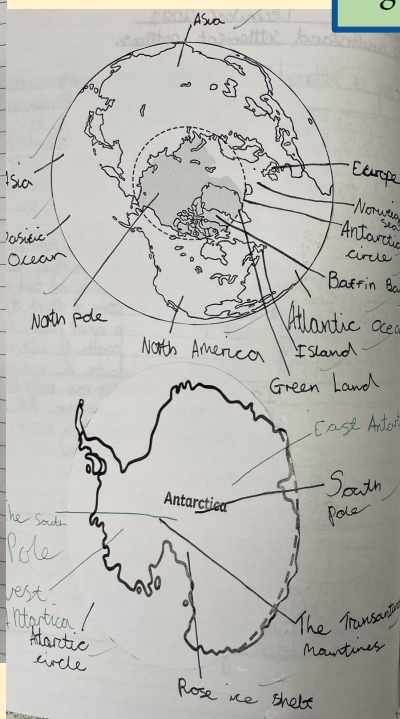 Asia
Europe
Asia
Norwegian sea
Antarctic
circle
Pacific
Ocean
Baffin Ba
North pole
Atlantic ocea
North America
Island
Green Land
East Antar
Antarctica
South
pole
The South
Pole
west
Antartica
Atlartic
circle
The Transant
Mauntines
Rose ice shelf